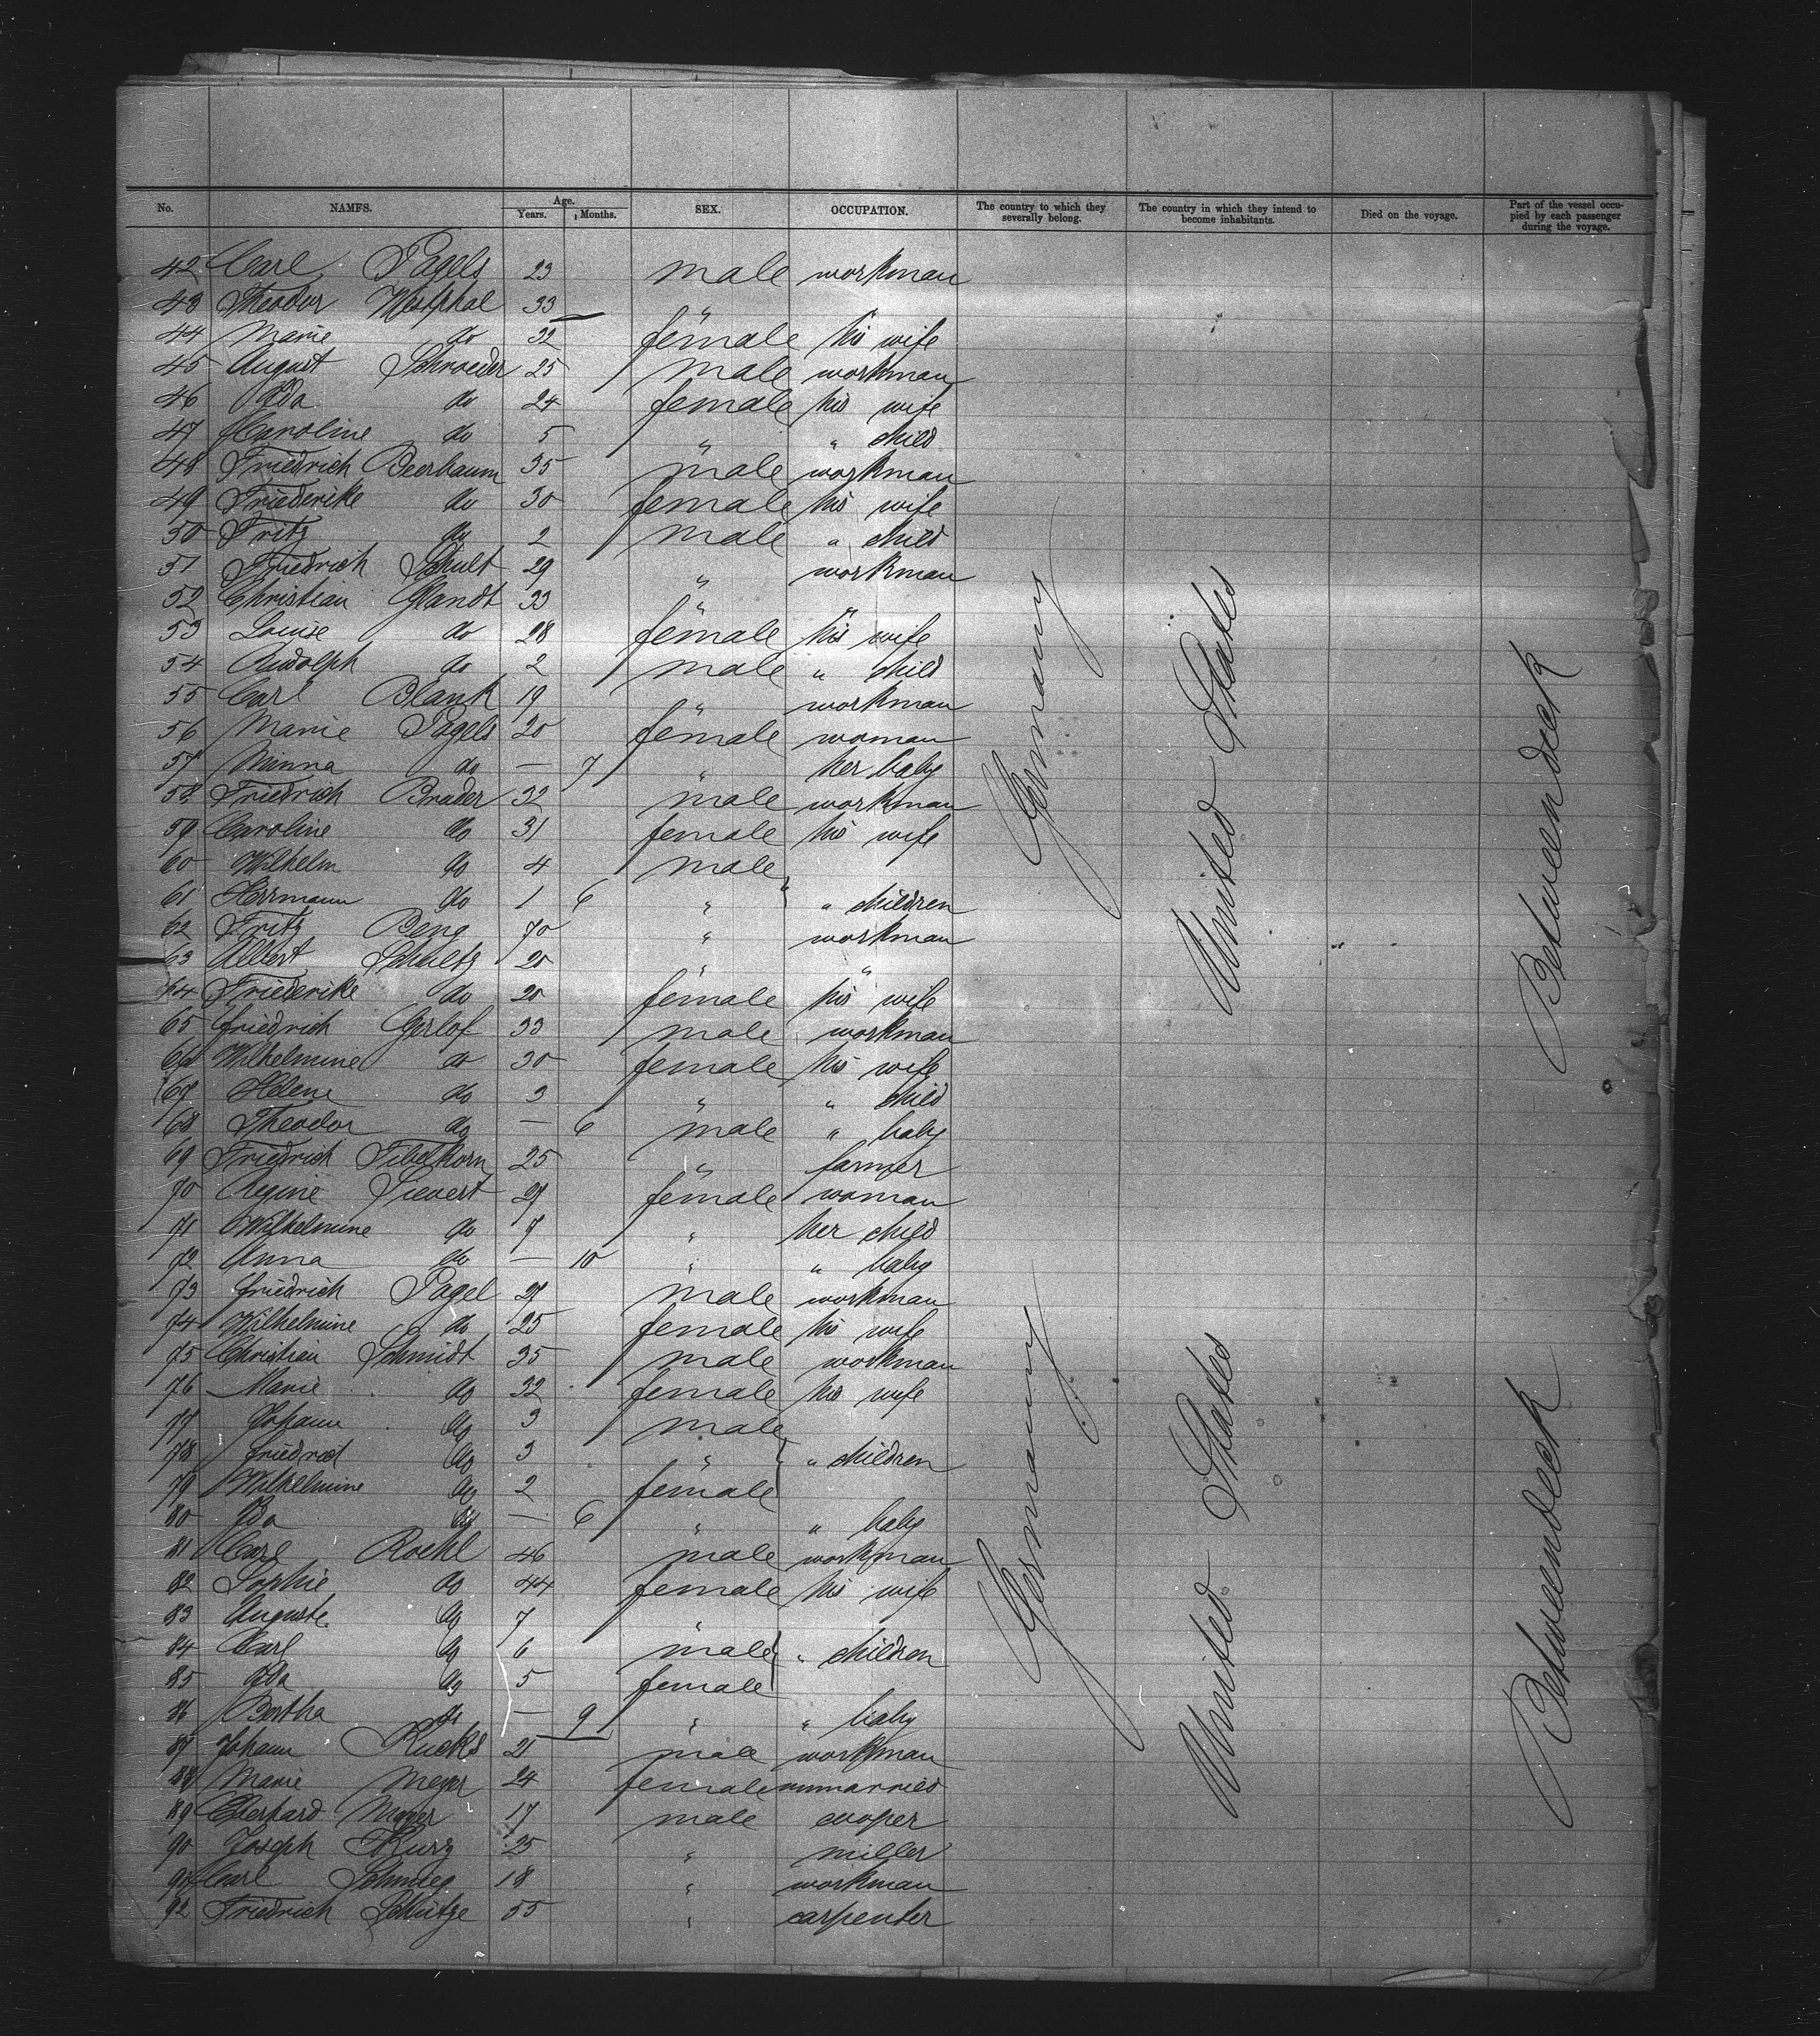 No. NAMES. Age. Years. Months. SEX. OCCUPATION. The country to which they severally belong. The country in which they intend to become inhabitants. Died on the voyage. Part of the vessel occupied by each passenger during the voyage.
42 Carl Pagels 23 male workman
43 Theodor Westphal 33 "
44 Marie do 32 female his wife
45 August Schroeder 25 male workman
46 Ida do 24 female his wife
47 Caroline do 5 " " child
48 Friedrich Beerbaum 35 male workman
49 Friederike do 30 female his wife
50 Fritz do 2 male " child
51 Friedrich Schult 29 " workman
52 Christian Glandt 33 " "
53 Louise do 28 female his wife
54 Rudolph do 2 male " child
55 Carl Blank 19 " workman
56 Marie Pagels 20 female woman
57 Minna do — 7 " her baby
58 Friedrich Brader 32 male workman
59 Caroline do 31 female his wife
60 Wilhelm do 4 male
61 Herrmann do 1 6 " " children
62 Fritz Beng 70 " workman
63 Albert Schultz 20 " "
64 Friederike do 20 female his wife
65 Friedrich Gerlof 33 male workman
66 Wilhelmine do 30 female his wife
67 Helene do 3 " " child
68 Theodor do — 6 male " baby
69 Friedrich 25 " farmer
70 Regine Sievert 27 female woman
71 Wilhelmine do 7 " her child
72 Anna do — 10 " " baby
73 Friedrich Pagel 27 male workman
74 Wilhelmine do 25 female his wife
75 Christian Schmidt 35 male workman
76 Marie do 32 female his wife
77 Johann do 3 male
78 Friedrich do 3 " " children
79 Wilhelmine do 2 female
80 Ida do — 6 " " baby
81 Carl Roehl 46 male workman
82 Sophie do 44 female his wife
83 Auguste do 7 "
84 Carl do 6 male " children
85 Ida do 5 female
86 Bertha do — 9 " " baby
87 Johann Rucks 21 male workman
88 Marie Meyer 24 female unmarried
89 Eberhard Meyer 17 male cooper
90 Joseph Kurz 25 " miller
91 Carl 18 " workman
92 Friedrich Schütze 55 " carpenter
Germany
United States
Betweendeck
Germany
United States
Betweendeck